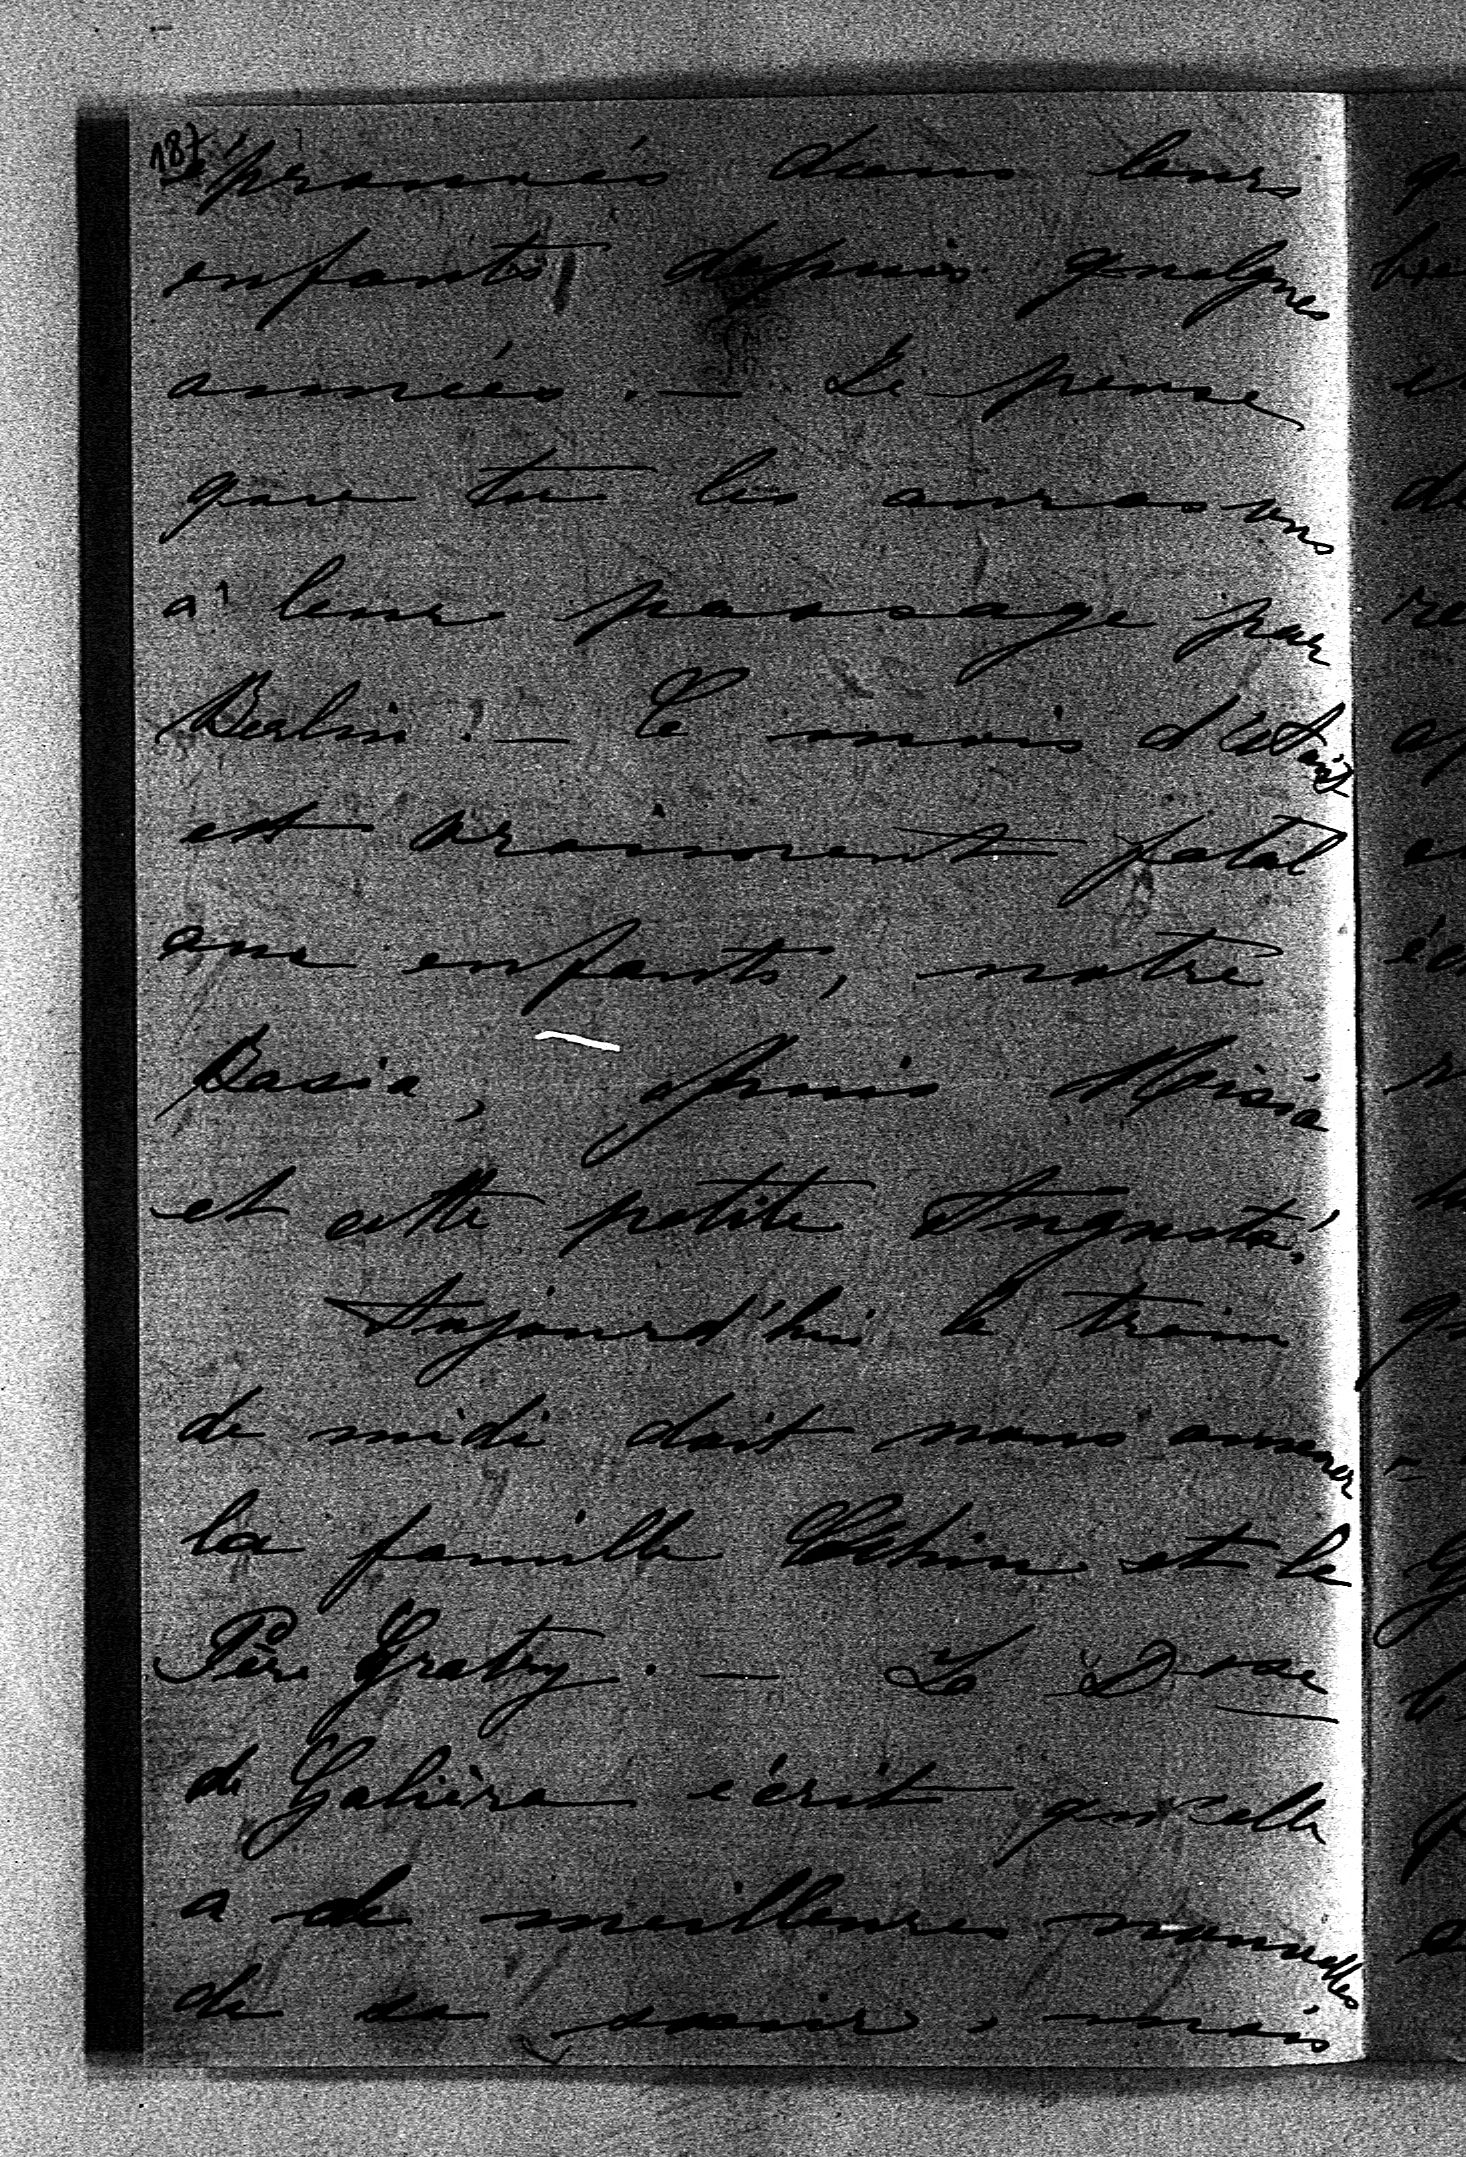 187
éprouvés dans leurs
enfants depuis quelques
années. — Je pense
que tu les auras vus
à leur passage par
Berlin. — Ce mois d'Août
est vraiment fatal
aux enfants, notre
Basia, puis Misia
et cette petite Augusta!
Aujourd'hui le train
de midi doit nous amener
la famille et le
Père Gratry. — La Dsse
de Galiéra écrit qu'elle
a de meilleures nouvelles
de sa soeur, mais